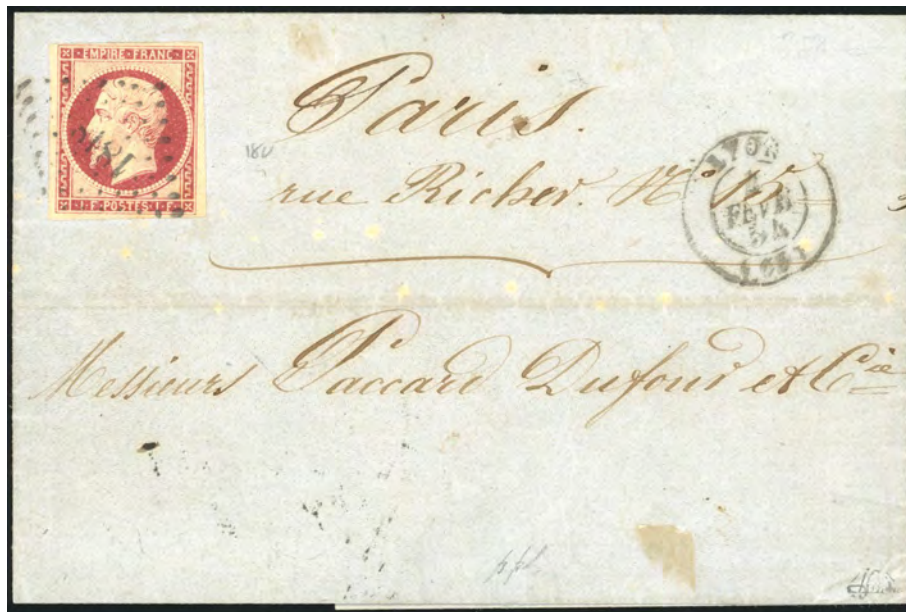 EMPIRE · FRANC
1·F·POSTES·1·F
Paris.
180
rue Richer. N° 15
LYON
FEVR
54
(68)
Messieurs Paccard Dufour et Cie